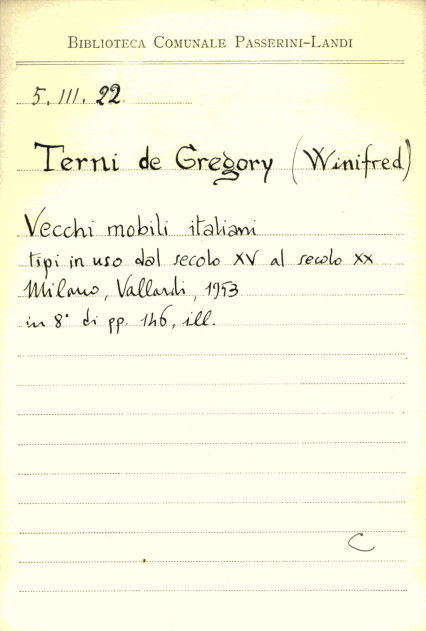 BIBLIOTECA COMUNALE PASSERINI-LANDI
5. III. 22
Terni de Gregory (Winifred)
Vecchi mobili italiani
tipi in uso dal secolo XV al secolo XX
Milano, Vallardi, 1953
in 8° di pp. 146, ill.
C